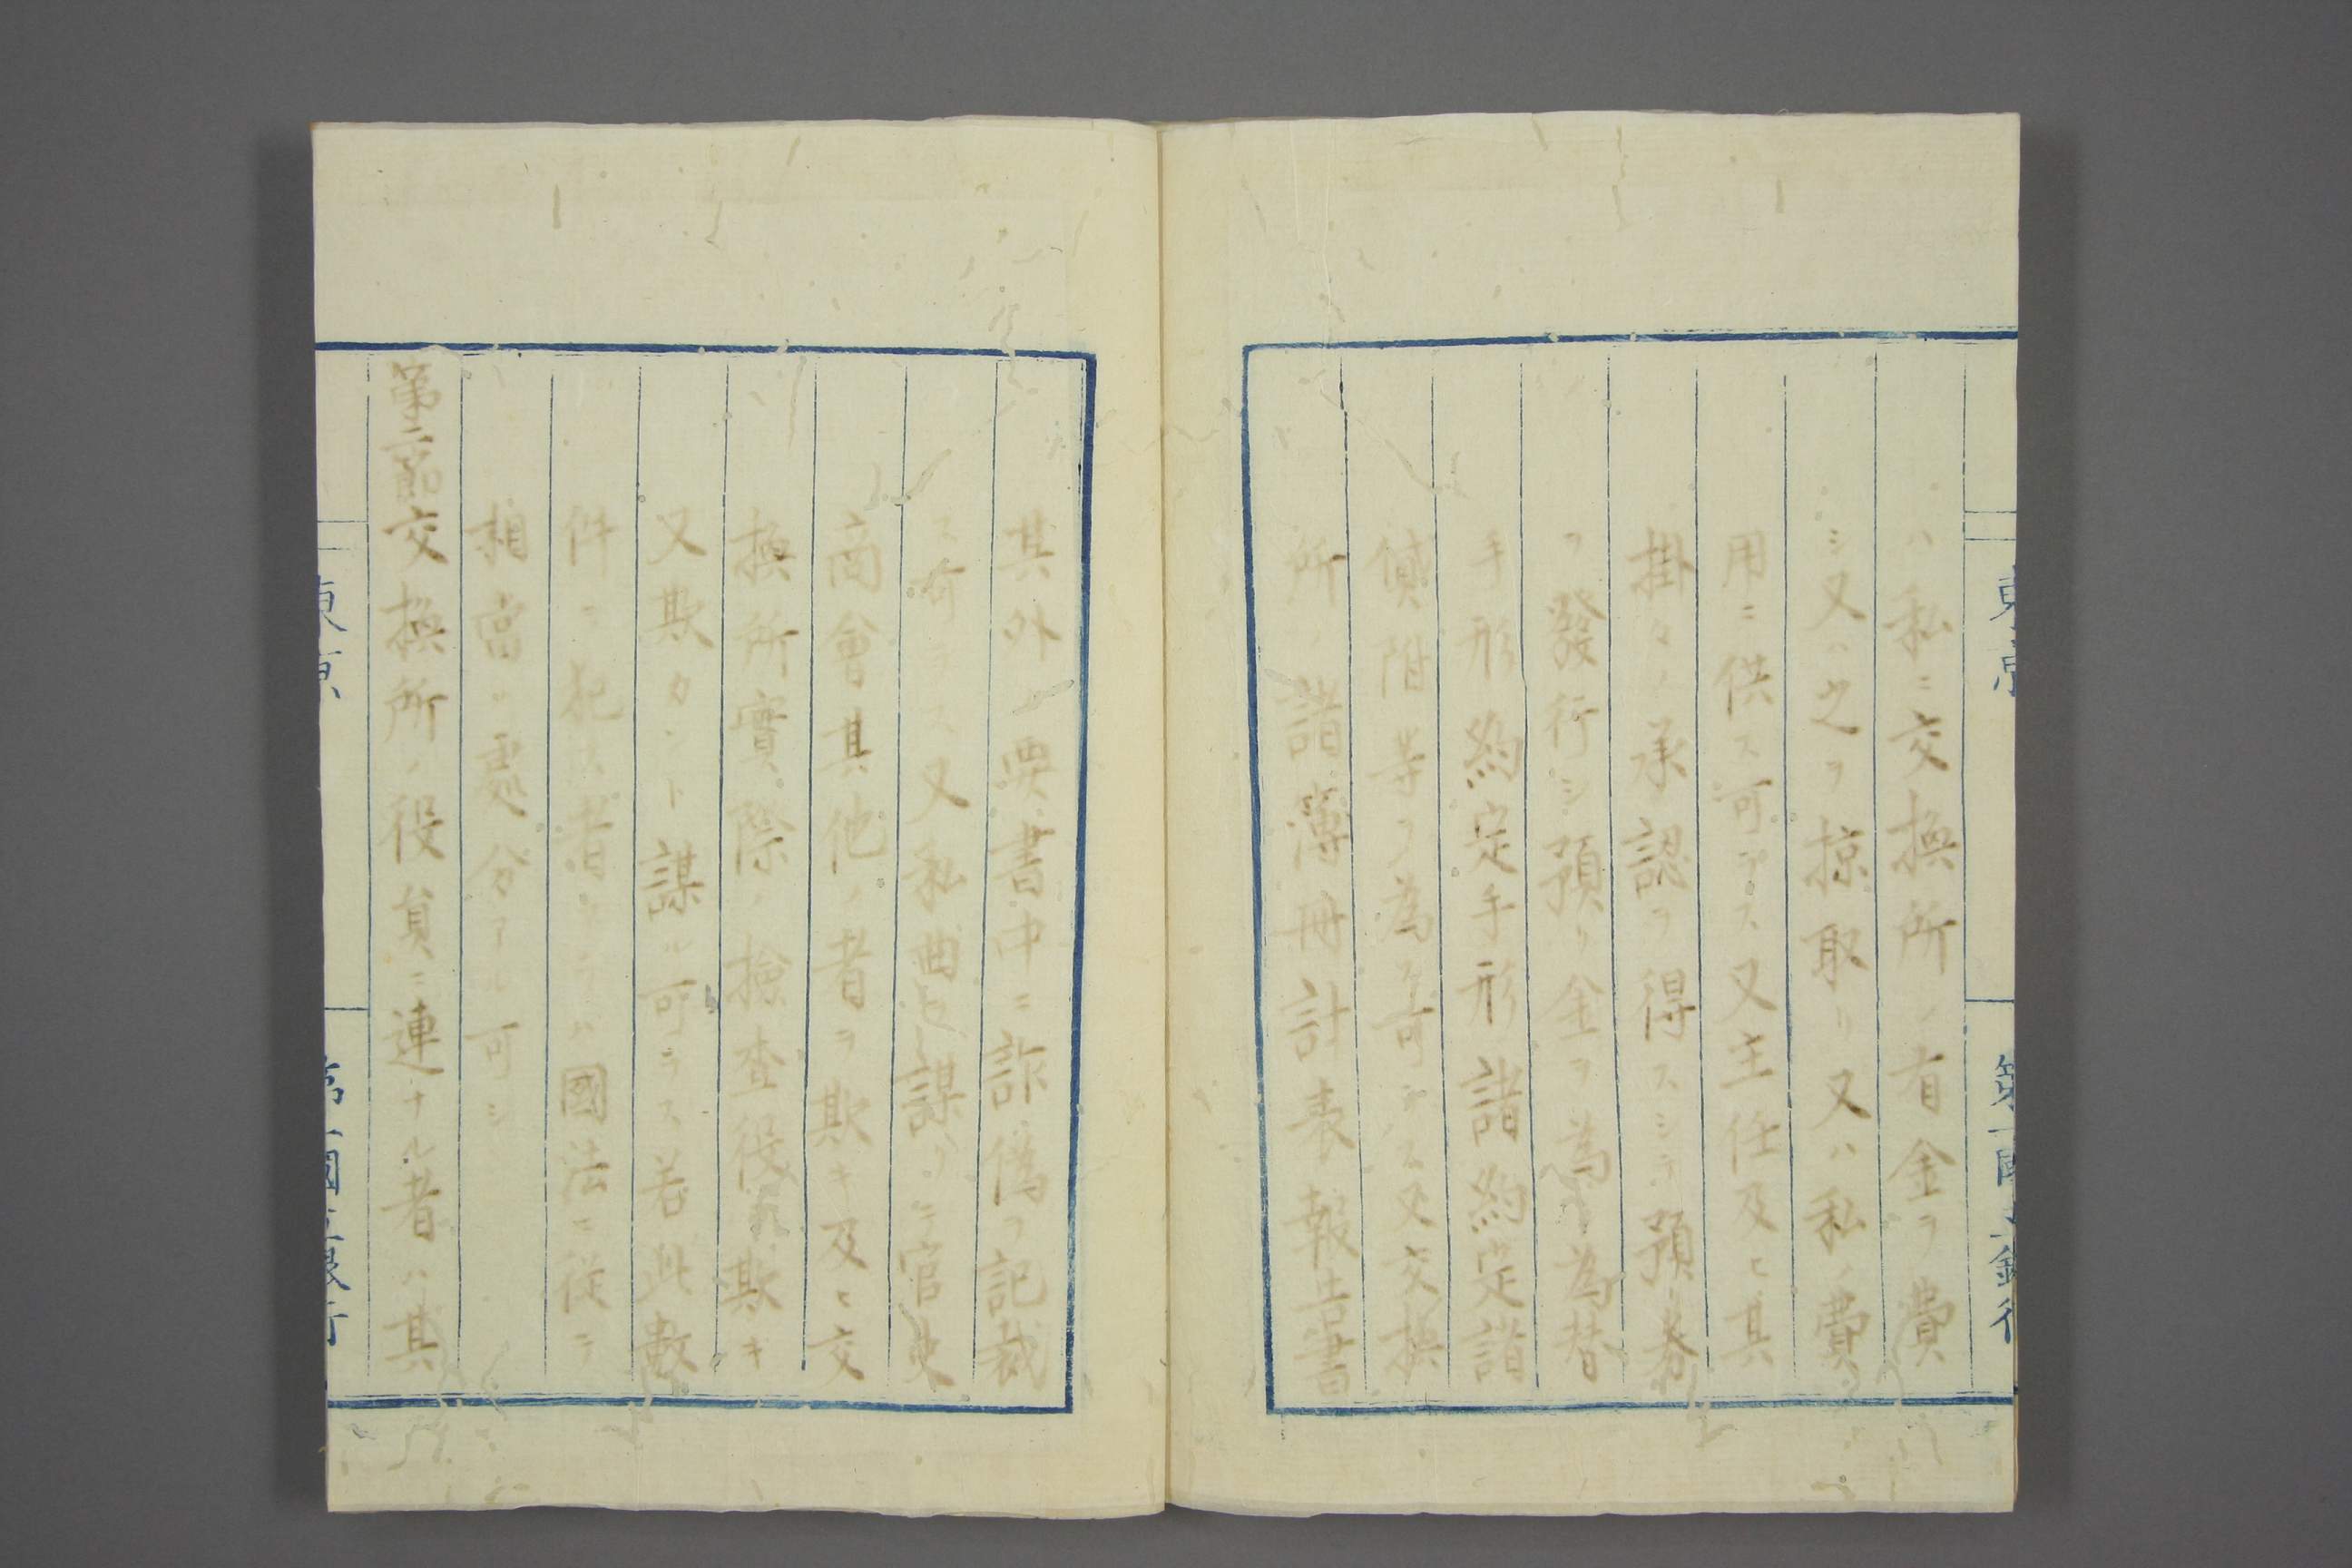 東京
第一國立銀行
ハ私ニ交換所ノ有金ヲ費
シ又ハ之ヲ掠取リ又ハ私ノ費
用ニ供ス可ラス又主任及ヒ其
掛々ノ承認ヲ得スシテ預リ券
ヲ發行シ預リ金ヲ為シ為替
手形約定手形諸約定諸
貸附等ヲ為ス可ラス又交換
所ノ諸簿冊計表報告書
其外ノ要書中ニ詐偽ヲ記載
ス可ラス又私曲ヲ謀リテ官吏
商會其他ノ者ヲ欺キ及ヒ交
換所實際ノ撿査役ヲ欺キ
又欺カント謀ル可ラス若此數
件ニ犯ス者アラハ國法ニ従テ
相當ニ處分アル可シ
第二節交換所ノ役員ニ連ナル者ハ其
東京
第一國立銀行